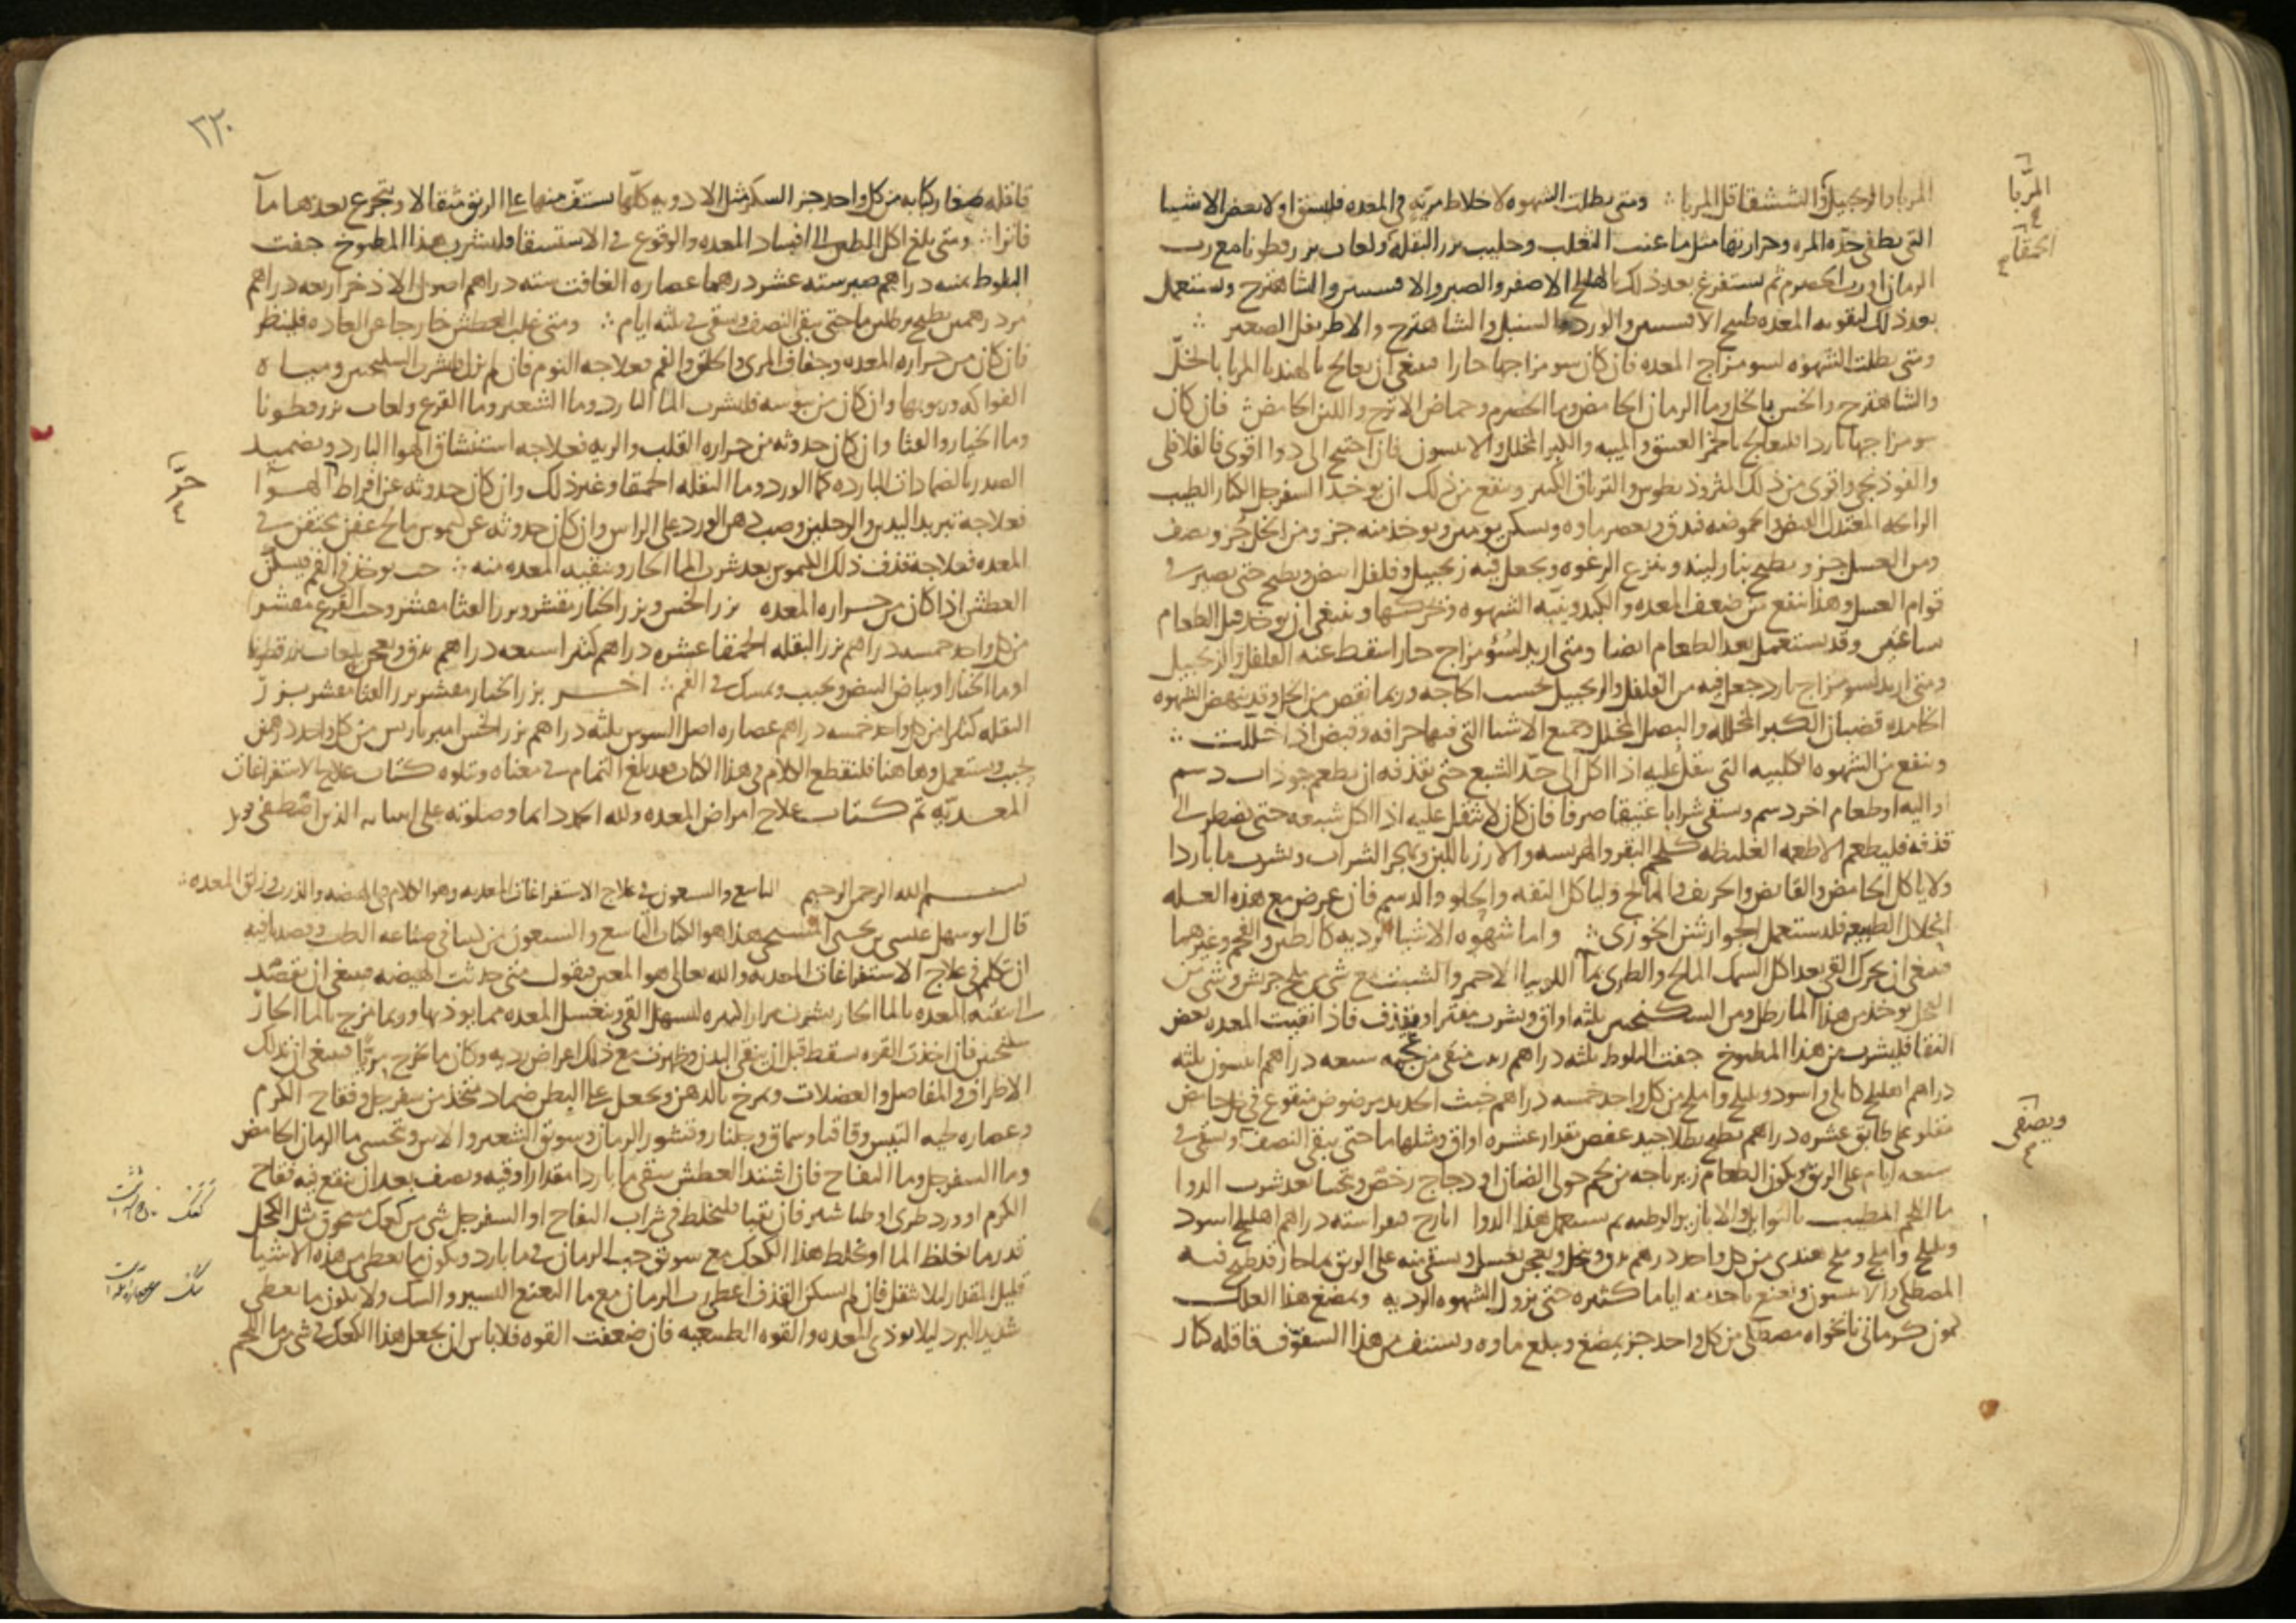 المربا والزنجبيل والششقاقل المربا ومتى بطلت الشهوه لاخلاط مريّه في المعده فليسق اولا بعض الاشيا
التى تطفى حدّه المره وحرارتها مثل ماء عنب الثعلب وحليب بزر البقله ولعاب بزر قطونا مع رب
الرمان او رب الحصرم ثم يستفرغ بعد ذلك بالهليلج الاصفر والصبر والافسنتين والشاهترج ويستعمل
بعد ذلك لتقويه المعده طبيخ الافسنتين والورد والسنبل والشاهترج والاطريفل الصغير
ومتى بطلت الشهوه لسو مزاج المعده فان كان سو مزاجها حارا فينبغى ان يعالج بالهندبا المربا بالخلّ
والشاهترج والخس بالخل وما الرمان الحامض وما الحصرم وحماض الاترج واللبن الحامض فان كان
سو مزاجها باردا فليعالج بالخمر العتيق والميبه والكبر المخلل والانيسون فان احتيج الى دوا اقوى فالفلافلى
والفوذنجى واقوى من ذلك المثروذيطوس والترياق الكبير وينفع من ذلك ان يوخذ السفرجل الكبار الطيب
الرائحه المعتدل القبض الحموضه فيدق ويعصر ماوه ويسكن يومين ويوخذ منه جز ومن الخل جز ونصف
ومن العسل جز ويطبخ بنار لينه وينزع الرغوه ويجعل فيه زنجبيل وفلفل ابيض ويطبخ حتى يصير فى
قوام العسل وهذا ينفع من ضعف المعده والكبد وينبه الشهوه ويحركها وينبغى ان يوخذ قبل الطعام
ساعتين وقد يستعمل بعد الطعام ايضا ومتى اريد لسوء مزاج حار اسقط عنه الفلفل والزنجبيل
ومتى اريد لسو مزاج بارد جعل فيه من الفلفل والزنجبيل بحسب الحاجه وربما نقص من الخل وقد ينهض الشهوه
الخامده قضبان الكبر المخلله والبصل المخلل وجميع الاشيا التى فيها حرافه وقبض اذا خللت
وينفع من الشهوه الكلبيه التى يثقل عليه اذا اكل الى حدّ الشبع حتى يقذفه ان يطعم جوذاب دسم
او اليه او طعام اخر دسم ويسقى شرابا عتيقا صرفا فان كان لا يثقل عليه اذا اكل شبعه حتى يضطر الى
قذفه فليطعم الاطعمه الغليظه كلحم البقر والهريسه والارز باللبن ويهجر الشراب ويشرب ما باردا
ولا ياكل الحامض والقابض والحريف والمالح ولياكل التفه والحلو والدسم فان عرض مع هذه العله
انحلال الطبيعه فليستعمل الجوارشن الخوزى واما شهوه الاشيا الرديه كالطين والفحم وغيرهما
فينبغى ان يحرك القى بعد اكل السمك المالح والطرى بما اللوبيا الاحمر والشبت مع شى من ملح جريش وشى من
العسل يوخذ من هذا الما رطل ومن السكنجبين ثلثه اواق ويشرب مفترا ويقذف فاذا نقيت المعده بعض
النقا فليشرب من هذا المطبوخ جفت البلوط ثلثه دراهم زبيب منقى من عجمه سبعه دراهم انيسون ثلثه
دراهم اهليلج كابلى واسود وبليلج واملج من كل واحد خمسه دراهم خبث الحديد مرضوض منقوع فى خل حامض
مقلو على طابق عشره دراهم يطبخ بطلا جيد عفص مقدار عشره اواق ومثلها ما حتى يبقى النصف ويسقى فى
سبعه ايام على الريق ويكون الطعام زيرباجه من لحم حولى الضان او دجاج رخص ويتحسا بعد شرب الدوا
ما اللحم المطيب بالتوابل والابازير الرطبه ثم يستعمل هذا الدوا ايارج فيقرا سته دراهم اهليلج اسود
وبليلج واملج وملح هندى من كل واحد درهم يدق وينخل ويعجن بعسل ويسقى منه على الريق بما حار قد طبخ فيه
المصطكى والانيسون ونعنع ياخذ منه اياما كثيره حتى تزول الشهوه الرديه ويمضغ هذا العلك
كمون كرمانى نانخواه مصطكى من كل واحد جز يمضغ ويبلع ماوه ويستف من هذا السفوف قاقله كبار
المربّا
الحمقا
ويصفى
٢٣٠
قاقله صغار كبابه من كل واحد جز السكر مثل الادويه كلها يستف منها على الريق مثقالا ويتجرع بعدها مآ
فاترا ومتى بلغ اكل الطين الى افساد المعده والوقوع فى الاستسقا فليشرب هذا المطبوخ جفت
البلوط ثمنيه دراهم صبر سته عشر درهما عصاره الغافت سته دراهم اصول الاذخر اربعه دراهم
مر درهمين يطبخ برطلين ما حتى يبقى النصف ويسقى فى ثلثه ايام ومتى غلب العطش خارجا عن العاده فلينظر
فان كان من حراره المعده وجفاف المرى والحلق والفم فعلاجه النوم فان لم يزل فليشرب السكنجبين ومياه
الفواكه وربوبها وان كان من يبوسه فليشرب الما البارد وما الشعير وما القرع ولعاب بزرقطونا
وما الخيار والقثا وان كان حدوثه من حراره القلب والريه فعلاجه استنشاق الهوا البارد وتضميد
الصدر بالضمادات البارده كما الورد وما البقله الحمقا وغير ذلك وان كان حدوثه عن افراط الهوا
فعلاجه تبريد اليدين والرجلين وصب دهن الورد على الراس وان كان حدوثه عن كيموس مالح عفن يحتقن فى
المعده فعلاجه قذف ذلك الكيموس بعد شرب الما الحار وتنقيه المعده منه حب يوخذ فى الفم فيسكّن
العطش اذا كان من حراره المعده بزر الخس وبزر الخيار مقشر وبزر القثا مقشر وحب القرع مقشر
من كل واحد خمسه دراهم بزر البقله الحمقا عشره دراهم كثيرا سبعه دراهم يدق ويعجن بلعاب بزرقطونا
او ما الخيار او بياض البيض ويحبب ويمسك فى الفم اخر بزر الخيار مقشر بزر القثا مقشر بزر
البقله كثيرا من كل واحد خمسه دراهم عصاره اصل السوس ثلثه دراهم بزر الخس امير باريس من كل واحد درهمين
يحبب ويستعمل وها هنا فلنقطع الكلام فى هذا الكتاب فقد بلغ التمام فى معناه ويتلوه كتاب علاج الاستفراغات
المعديّه تم كتاب علاج امراض المعده ولله الحمد دايما وصلوته على انبيائه الذين اصطفى
بسم الله الرحمن الرحيم التاسع والسبعون فى علاج الاستفراغات المعديه وهو الكلام فى الهيضه والذرب وزلق المعده
قال ابو سهل عيسى بن يحيى المسيحى هذا هو الكتاب التاسع والسبعون من كتبنا فى صناعه الطب وقصدنا فيه
ان نتكلم فى علاج الاستفراغات المعديه والله تعالى هو المعين فنقول متى حدثت الهيضه فينبغى ان يقصد
الى تنقيه المعده بالما الحار يشرب مرارا كثيره ليسهل القى ويغسل المعده مما يوذيها وربما مزج بالما الحار
سكنجبين فان اخذت القوه تسقط قبل ان ينقى البدن وظهرت مع ذلك اعراض رديه وكان ما يخرج مريّا فينبغى ان تدلك
الاطراف والمفاصل والعضلات وتمرخ بالدهن ويجعل على البطن ضماد متخذ من سفرجل وفقاح الكرم
وعصاره لحيه التيس وقاقيا وسماق وجلنار وقشور الرمان وسويق الشعير والاس ويحسى ما الرمان الحامض
وما السفرجل وما التفاح فان اشتد العطش سقى ما باردا مقدار اوقيه ونصف بعد ان ينقع فيه فقاح
الكرم او ورد طرى او طباشير فان تقيا فليخلط فى شراب التفاح او السفرجل شى من كعك مسحوق مثل الكحل
قدر ما يغلظ الما او يخلط هذا الكعك مع سويق حب الرمان فى ما بارد ويكون ما يعطى من هذه الاشيا
قليل المقدار ليلا يثقل فان لم يسكن القذف اعطى رب الرمان مع ما النعنع اليسير والسك ولا يكون ما يعطى
شديد البرد ليلا يوذى المعده والقوه الطبيعيه فان ضعفت القوه فلا باس ان يجعل هذا الكعك فى شى من ما اللحم
حرّ
كعك
سك